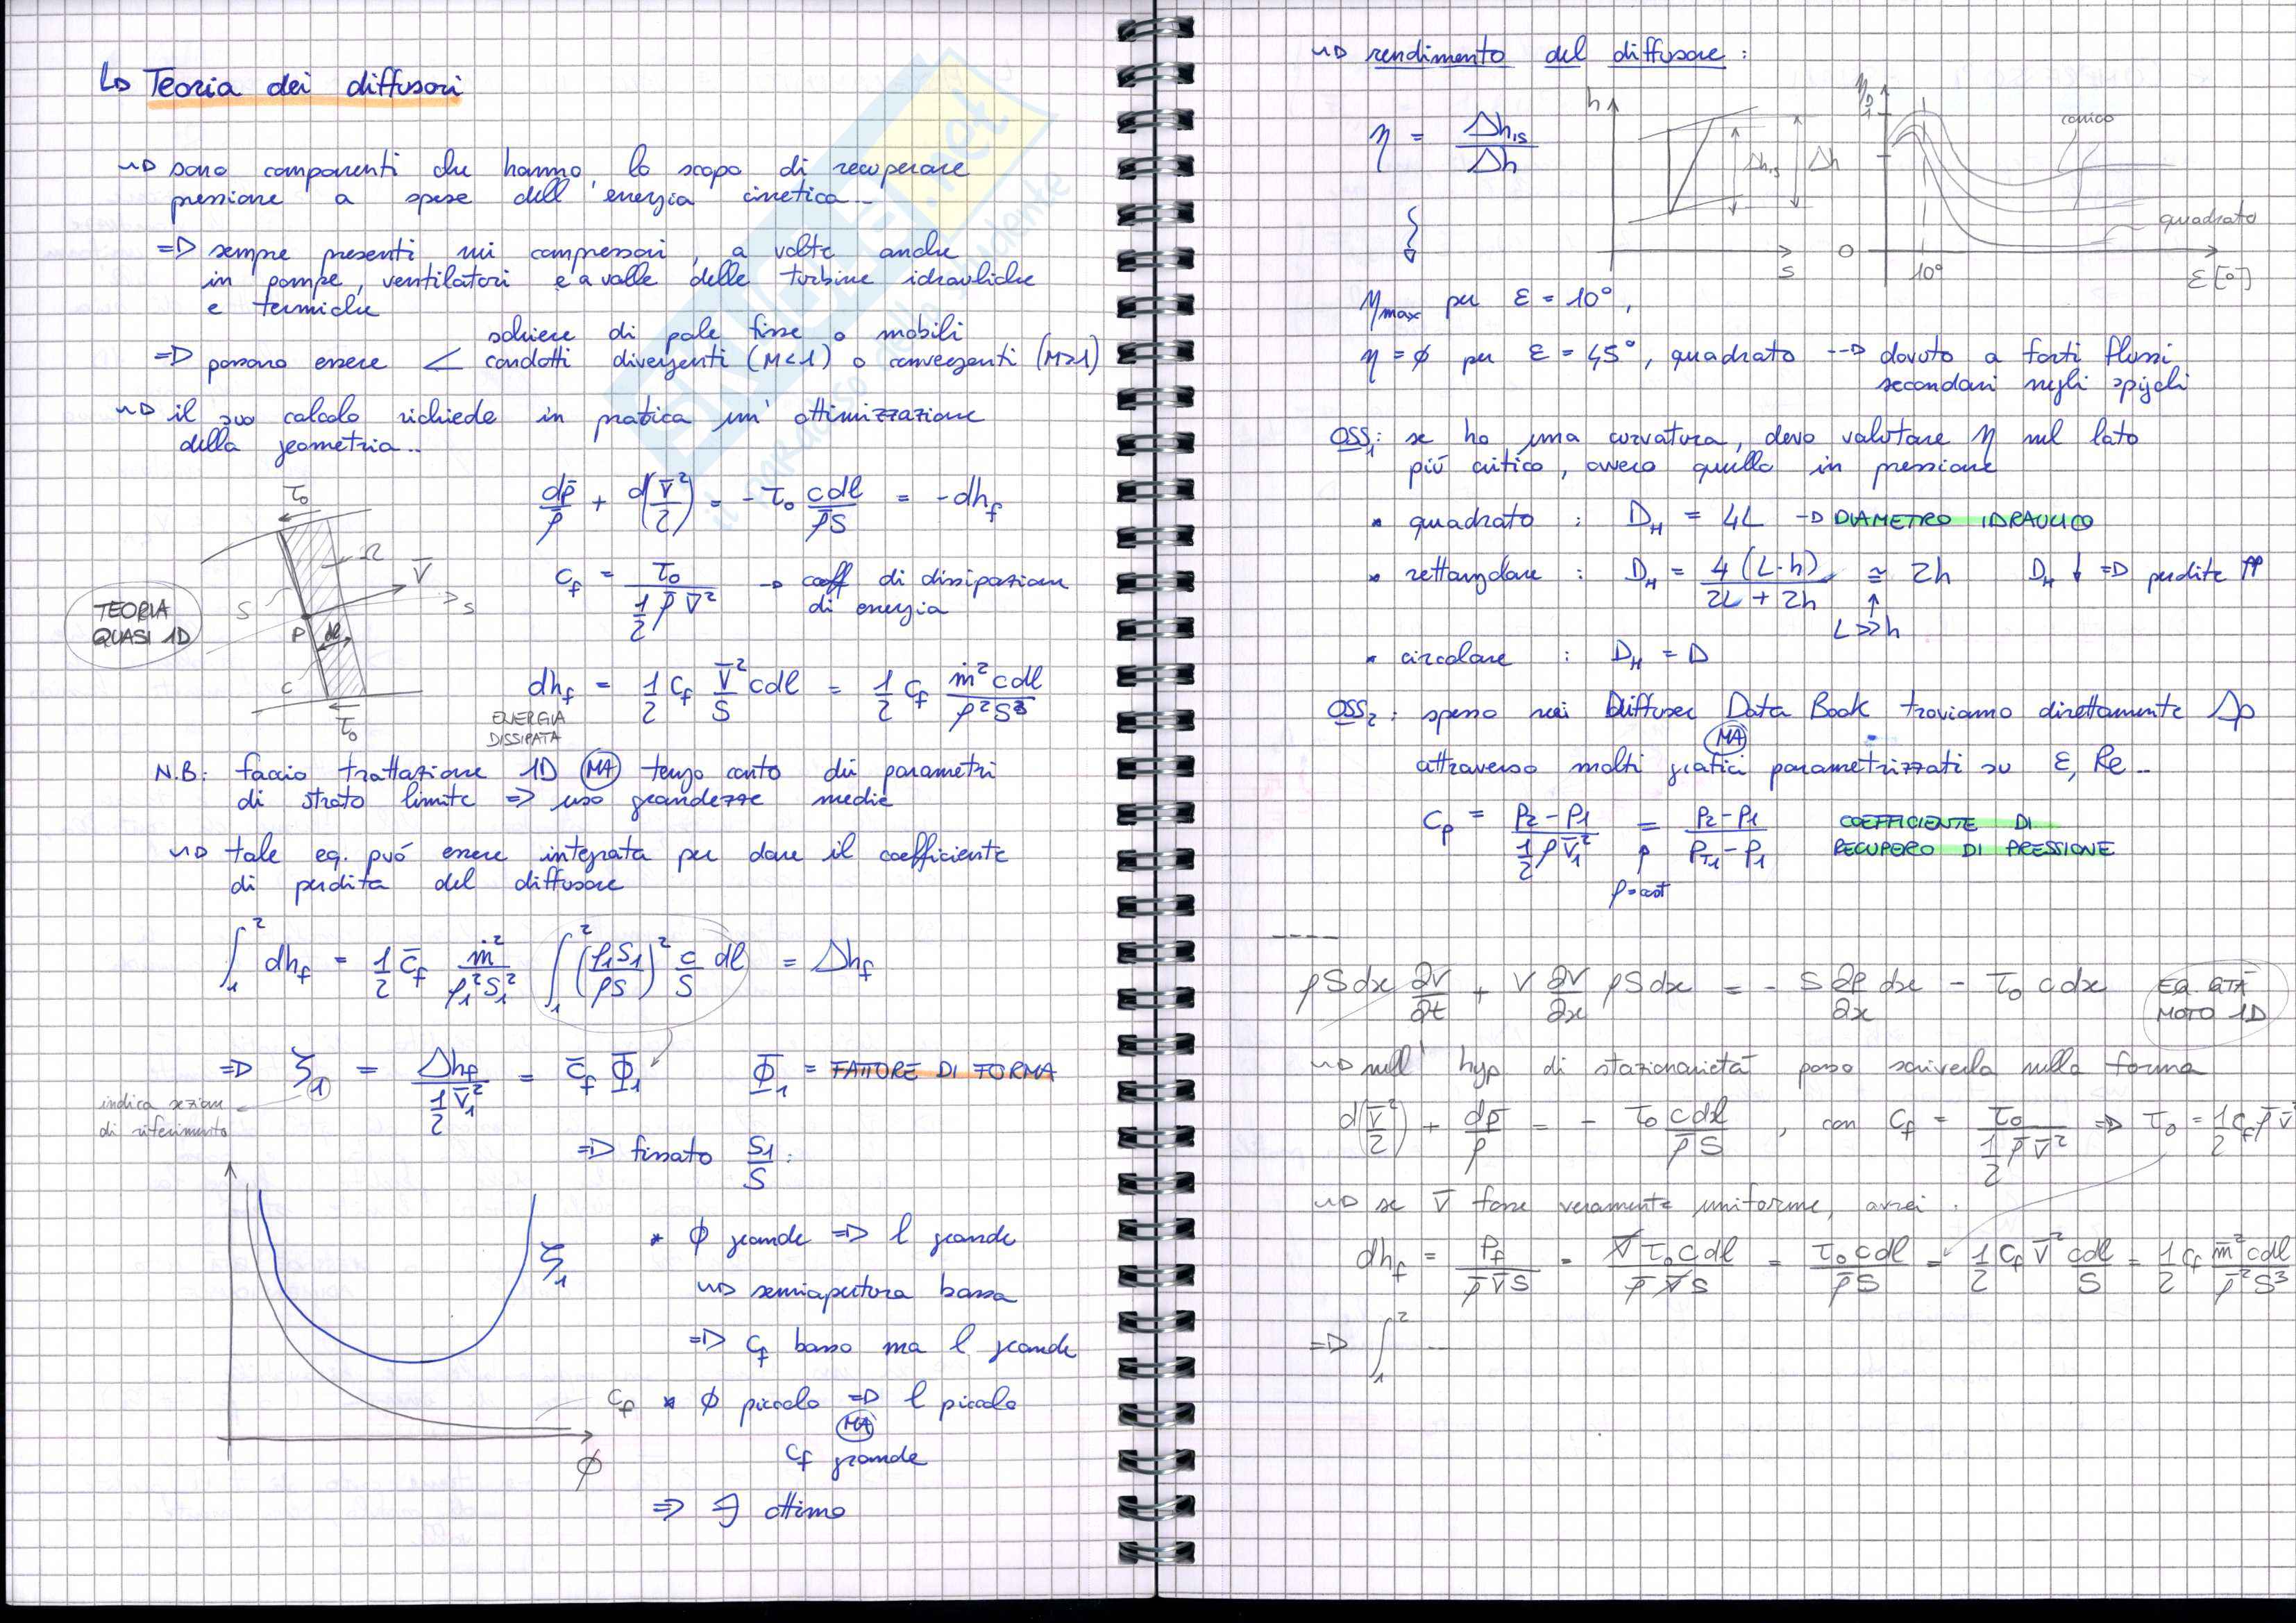 ↳ Teoria dei diffusori
~> sono componenti che hanno lo scopo di recuperare
pressione a spese dell'energia cinetica...
=> sempre presenti nei compressori, a volte anche
in pompe, ventilatori e a valle delle turbine idrauliche
e termiche
schiere di pale fisse o mobili
=> possono essere < condotti divergenti (M<1) o convergenti (M>1)
~> il suo calcolo richiede in pratica un'ottimizzazione
della geometria...
TEORIA
QUASI 1D
τ₀
Ω
V̄
S
s
P
dl
c
τ₀
dp̄/ρ̄ + d(V̄²/2) = - τ₀ cdl/(ρ̄S) = -dh_f
c_f = τ₀/(½ ρ̄ V̄²) -> coeff di dissipazione
di energia
dh_f = ½ c_f V̄²/S cdl = ½ c_f ṁ² cdl/(ρ²S³)
ENERGIA
DISSIPATA
N.B: faccio trattazione 1D MA tengo conto dei parametri
di strato limite => uso grandezze medie
~> tale eq. può essere integrata per dare il coefficiente
di perdita del diffusore
∫₁² dh_f = ½ c̄_f ṁ²/(ρ₁²S₁²) ∫₁² (ρ₁S₁/ρS)² c/S dl = Δh_f
=> ζ₁ = Δh_f/(½ V̄₁²) = c̄_f Φ₁ Φ₁ = FATTORE DI FORMA
indica sezione
di riferimento
=> fissato S₁/S :
ζ₁
* ϕ grande => l grande
~> semiapertura bassa
=> c_f basso ma l grande
c_f * ϕ piccolo => l piccolo
MA
c_f grande
ϕ
=> ∃ ottimo
~> rendimento del diffusore :
η = Δh_is/Δh
h
Δh_is
Δh
s
η_D
1
conico
quadrato
0
10°
ε [°]
η_max per ε = 10°,
η = ϕ per ε = 45°, quadrato --> dovuto a forti flussi
secondari negli spigoli
OSS₁: se ho una curvatura, devo valutare η nel lato
più critico, ovvero quello in pressione
* quadrato : D_H = 4L -> DIAMETRO IDRAULICO
* rettangolare : D_H = 4(L·h)/(2L + 2h) ≅ 2h D_H ↓ => perdite ↑↑
↑
L>>h
* circolare : D_H = D
OSS₂: spesso nei Diffuser Data Book troviamo direttamente Δp
MA
attraverso molti grafici parametrizzati su ε, Re...
c_p = (p₂-p₁)/(½ρV̄₁²) = (p₂-p₁)/(p_T1-p₁) COEFFICIENTE DI
RECUPERO DI PRESSIONE
↑
ρ=cost
----
ρSdx ∂V/∂t + V ∂V/∂x ρSdx = - S ∂p/∂x dx - τ₀ cdx EQ. QTÀ
MOTO 1D
~> nell'hyp di stazionarietà posso scriverla nella forma
d(V̄²/2) + dp̄/ρ = - τ₀ cdl/(ρ̄S) , con c_f = τ₀/(½ρ̄V̄²) => τ₀ = ½ c_f ρ̄ V̄
~> se V̄ fosse veramente uniforme, avrei :
dh_f = P_f/(ρ̄V̄S) = V̄τ₀cdl/(ρ̄V̄S) = τ₀cdl/(ρ̄S) = ½ c_f V̄² cdl/S = ½ c_f ṁ²cdl/(ρ̄²S³)
=> ∫₁² ...